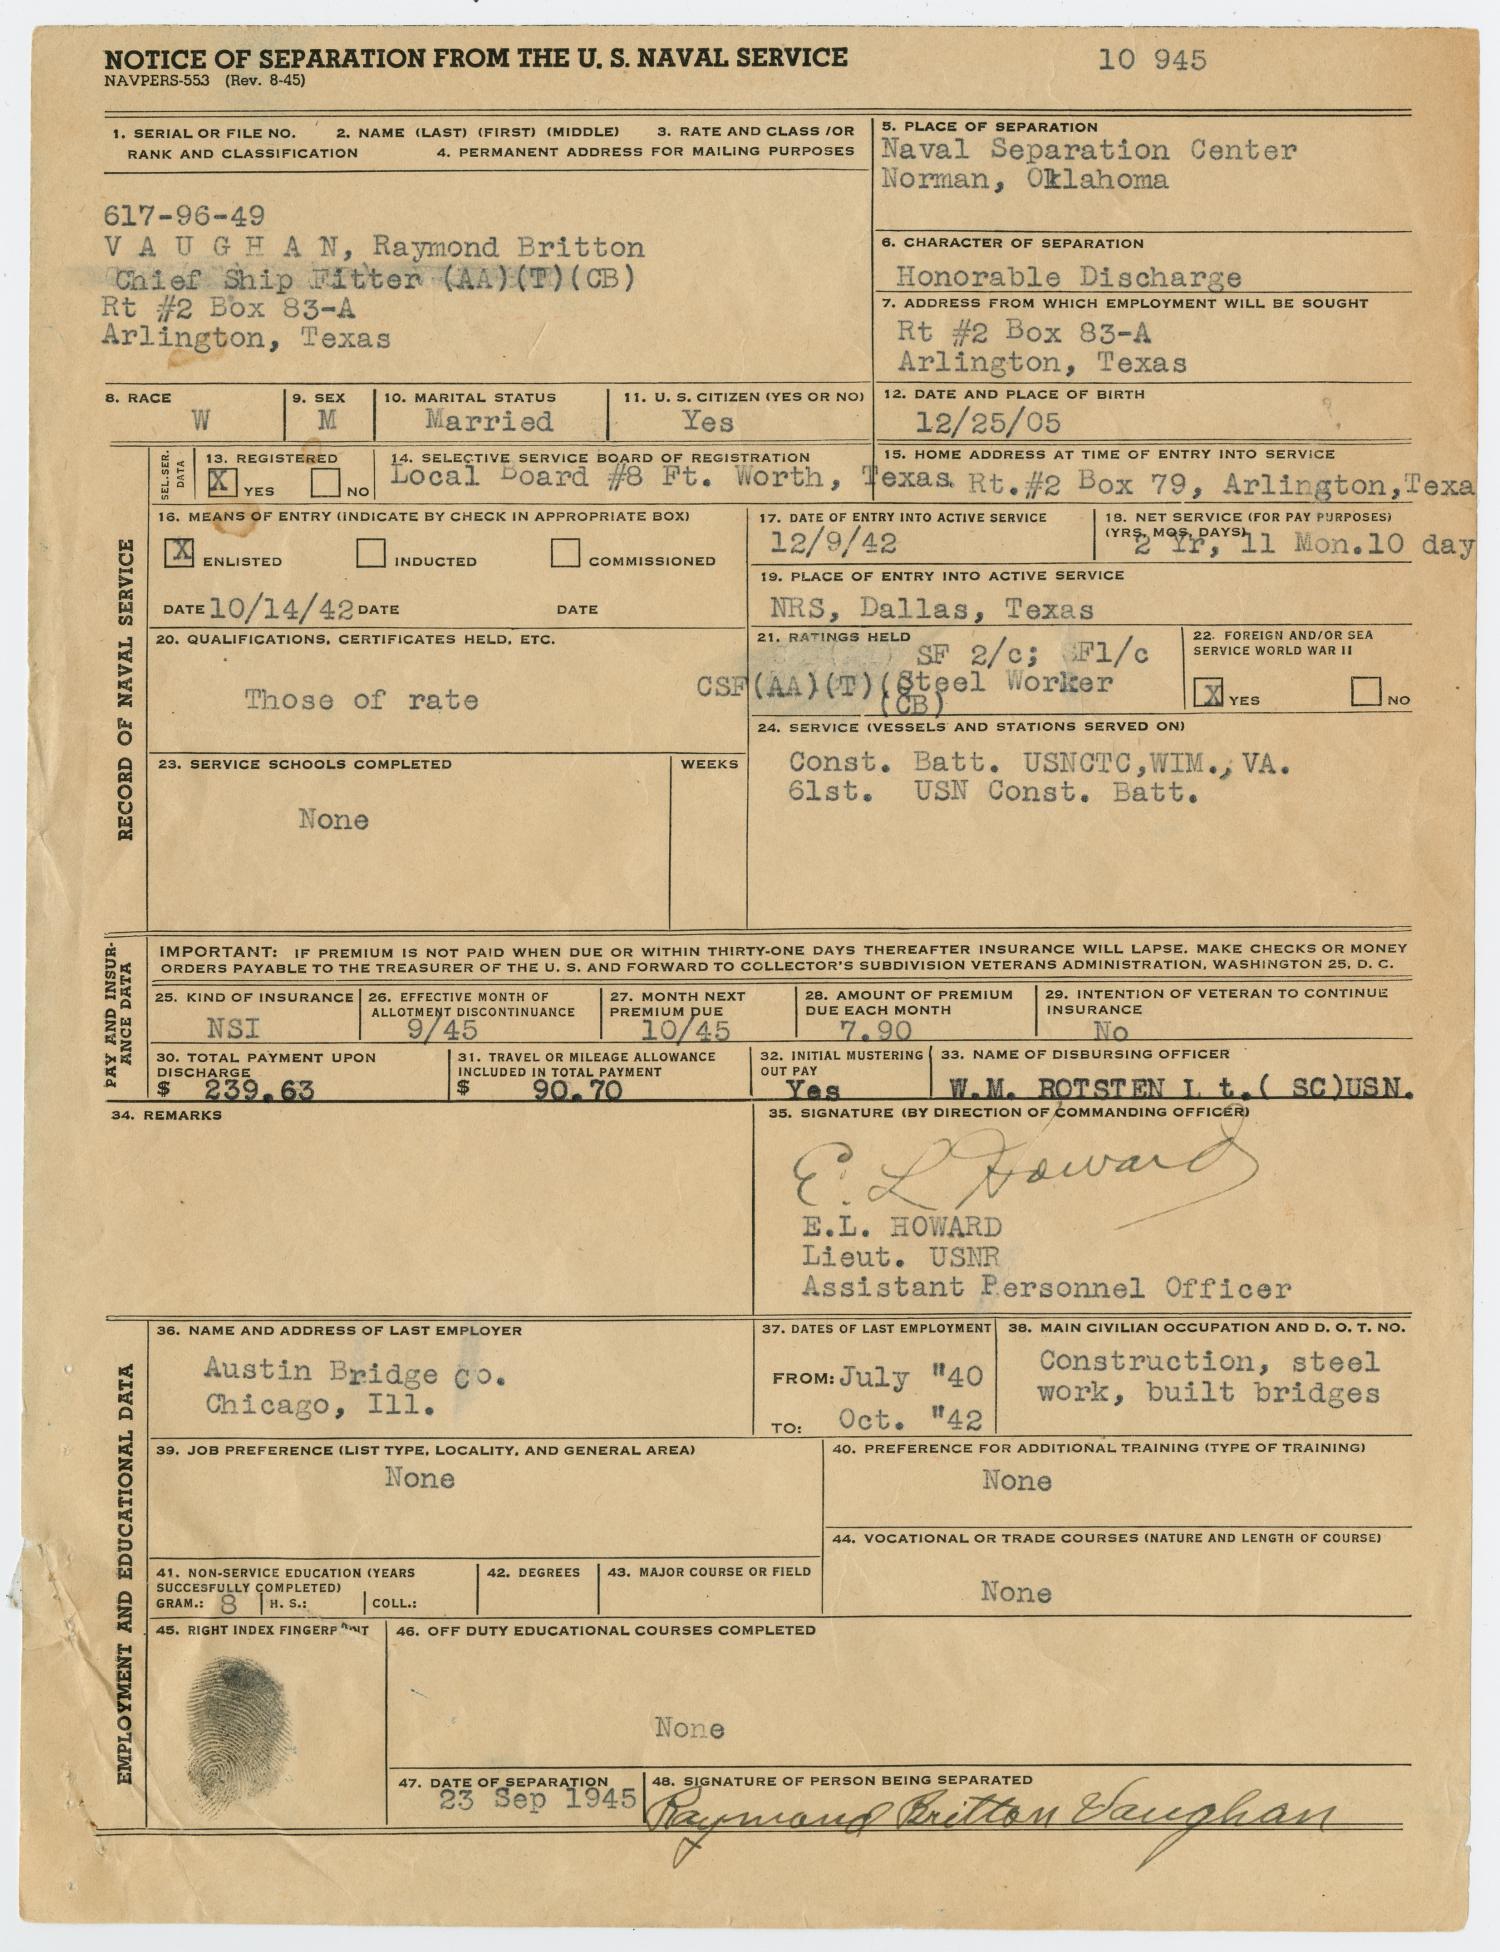 NOTICE OF SEPARATION FROM THE U. S. NAVAL SERVICE
NAVPERS-553 (Rev. 8-45)
10 945
1. SERIAL OR FILE NO. 2. NAME (LAST) (FIRST) (MIDDLE) 3. RATE AND CLASS /OR
RANK AND CLASSIFICATION 4. PERMANENT ADDRESS FOR MAILING PURPOSES
617-96-49
V A U G H A N, Raymond Britton
Chief Ship Fitter (AA)(T)(CB)
Rt #2 Box 83-A
Arlington, Texas
5. PLACE OF SEPARATION
Naval Separation Center
Norman, Oklahoma
6. CHARACTER OF SEPARATION
Honorable Discharge
7. ADDRESS FROM WHICH EMPLOYMENT WILL BE SOUGHT
Rt #2 Box 83-A
Arlington, Texas
8. RACE
W
9. SEX
M
10. MARITAL STATUS
Married
11. U. S. CITIZEN (YES OR NO)
Yes
12. DATE AND PLACE OF BIRTH
12/25/05
SEL. SER. DATA
13. REGISTERED
X YES NO
14. SELECTIVE SERVICE BOARD OF REGISTRATION
Local Board #8 Ft. Worth, Texas
15. HOME ADDRESS AT TIME OF ENTRY INTO SERVICE
Rt.#2 Box 79, Arlington,Texa
RECORD OF NAVAL SERVICE
16. MEANS OF ENTRY (INDICATE BY CHECK IN APPROPRIATE BOX)
X ENLISTED INDUCTED COMMISSIONED
DATE 10/14/42 DATE DATE
17. DATE OF ENTRY INTO ACTIVE SERVICE
12/9/42
18. NET SERVICE (FOR PAY PURPOSES)
(YRS, MOS, DAYS)
2 Yr, 11 Mon.10 day
19. PLACE OF ENTRY INTO ACTIVE SERVICE
NRS, Dallas, Texas
20. QUALIFICATIONS, CERTIFICATES HELD, ETC.
Those of rate
21. RATINGS HELD
SF 2/c; SF1/c
CSF(AA)(T)(Steel Worker
(CB)
22. FOREIGN AND/OR SEA
SERVICE WORLD WAR II
X YES NO
23. SERVICE SCHOOLS COMPLETED
WEEKS
None
24. SERVICE (VESSELS AND STATIONS SERVED ON)
Const. Batt. USNCTC,WIM., VA.
61st. USN Const. Batt.
PAY AND INSUR-
ANCE DATA
IMPORTANT: IF PREMIUM IS NOT PAID WHEN DUE OR WITHIN THIRTY-ONE DAYS THEREAFTER INSURANCE WILL LAPSE. MAKE CHECKS OR MONEY
ORDERS PAYABLE TO THE TREASURER OF THE U. S. AND FORWARD TO COLLECTOR'S SUBDIVISION VETERANS ADMINISTRATION, WASHINGTON 25, D. C.
25. KIND OF INSURANCE
NSI
26. EFFECTIVE MONTH OF
ALLOTMENT DISCONTINUANCE
9/45
27. MONTH NEXT
PREMIUM DUE
10/45
28. AMOUNT OF PREMIUM
DUE EACH MONTH
7.90
29. INTENTION OF VETERAN TO CONTINUE
INSURANCE
No
30. TOTAL PAYMENT UPON
DISCHARGE
$ 239.63
31. TRAVEL OR MILEAGE ALLOWANCE
INCLUDED IN TOTAL PAYMENT
$ 90.70
32. INITIAL MUSTERING
OUT PAY
Yes
33. NAME OF DISBURSING OFFICER
W.M. ROTSTEN L t.( SC)USN.
34. REMARKS
35. SIGNATURE (BY DIRECTION OF COMMANDING OFFICER)
E. L Howard
E.L. HOWARD
Lieut. USNR
Assistant Personnel Officer
EMPLOYMENT AND EDUCATIONAL DATA
36. NAME AND ADDRESS OF LAST EMPLOYER
Austin Bridge Co.
Chicago, Ill.
37. DATES OF LAST EMPLOYMENT
FROM: July "40
TO: Oct. "42
38. MAIN CIVILIAN OCCUPATION AND D. O. T. NO.
Construction, steel
work, built bridges
39. JOB PREFERENCE (LIST TYPE, LOCALITY, AND GENERAL AREA)
None
40. PREFERENCE FOR ADDITIONAL TRAINING (TYPE OF TRAINING)
None
41. NON-SERVICE EDUCATION (YEARS
SUCCESFULLY COMPLETED)
GRAM.: 8 H. S.: COLL.:
42. DEGREES
43. MAJOR COURSE OR FIELD
44. VOCATIONAL OR TRADE COURSES (NATURE AND LENGTH OF COURSE)
None
45. RIGHT INDEX FINGERPRINT
46. OFF DUTY EDUCATIONAL COURSES COMPLETED
None
47. DATE OF SEPARATION
23 Sep 1945
48. SIGNATURE OF PERSON BEING SEPARATED
Raymond Britton Vaughan